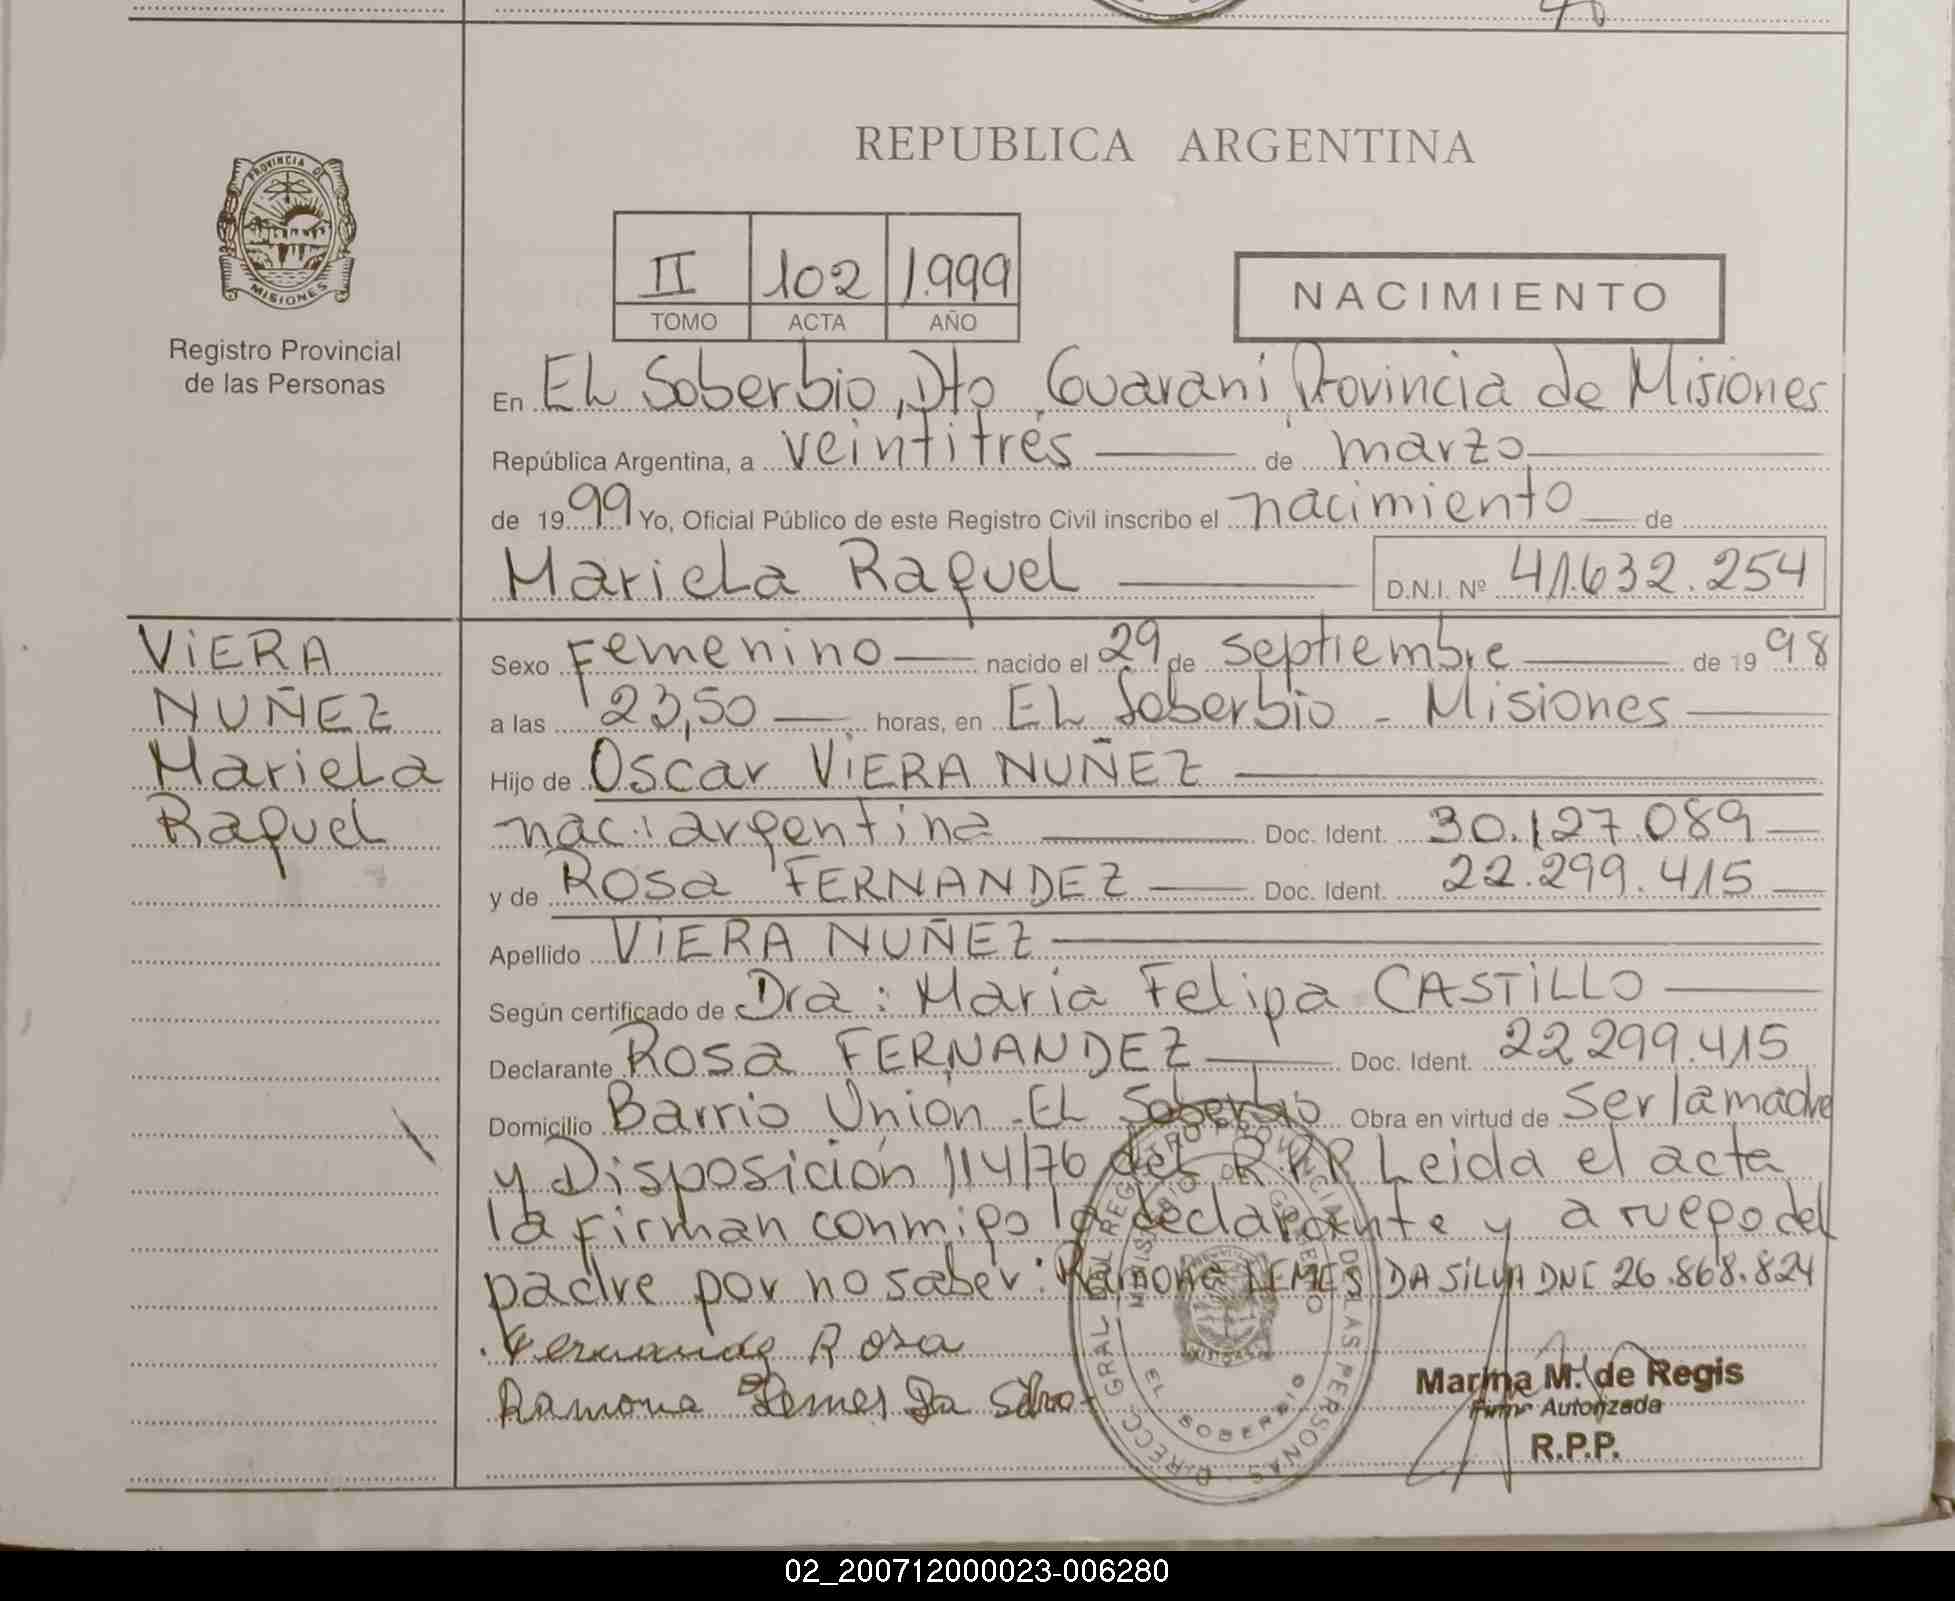 REPUBLICA ARGENTINA
PROVINCIA DE
MISIONES
Registro Provincial
de las Personas
II 102 1.999
TOMO ACTA AÑO
NACIMIENTO
En EL Soberbio, Dto Guaraní Provincia de Misiones
República Argentina, a veintitrés de marzo
de 1999 Yo, Oficial Público de este Registro Civil inscribo el nacimiento de
Mariela Raquel D.N.I. Nº 41.632.254
VIERA
NUÑEZ
Mariela
Raquel
Sexo Femenino nacido el 29 de septiembre de 1998
a las 23,50 horas, en EL Soberbio - Misiones
Hijo de Oscar VIERA NUÑEZ
nac: argentina Doc. Ident. 30.127.089
y de Rosa FERNANDEZ Doc. Ident. 22.299.415
Apellido VIERA NUÑEZ
Según certificado de Dra: Maria Felipa CASTILLO
Declarante Rosa FERNANDEZ Doc. Ident. 22.299.415
Domicilio Barrio Unión - EL Soberbio Obra en virtud de ser la madre
y Disposición 114/76 del R.P.P Leida el acta
la firman conmigo la declarante y a ruego del
padre por no saber: Ramona LEMES DA SILVA DNI 26.868.824
Fernandez Rosa
Ramona Lemes Da Silva
DIRECC. GRAL. DEL REGISTRO PROVINCIAL DE LAS PERSONAS
MINISTERIO DE GOBIERNO
MISIONES
EL SOBERBIO
Marina M. de Regis
Firma Autorizada
R.P.P.
02_200712000023-006280